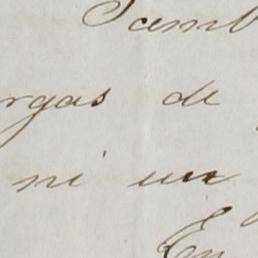 Tamb
rgas de
ni un
En